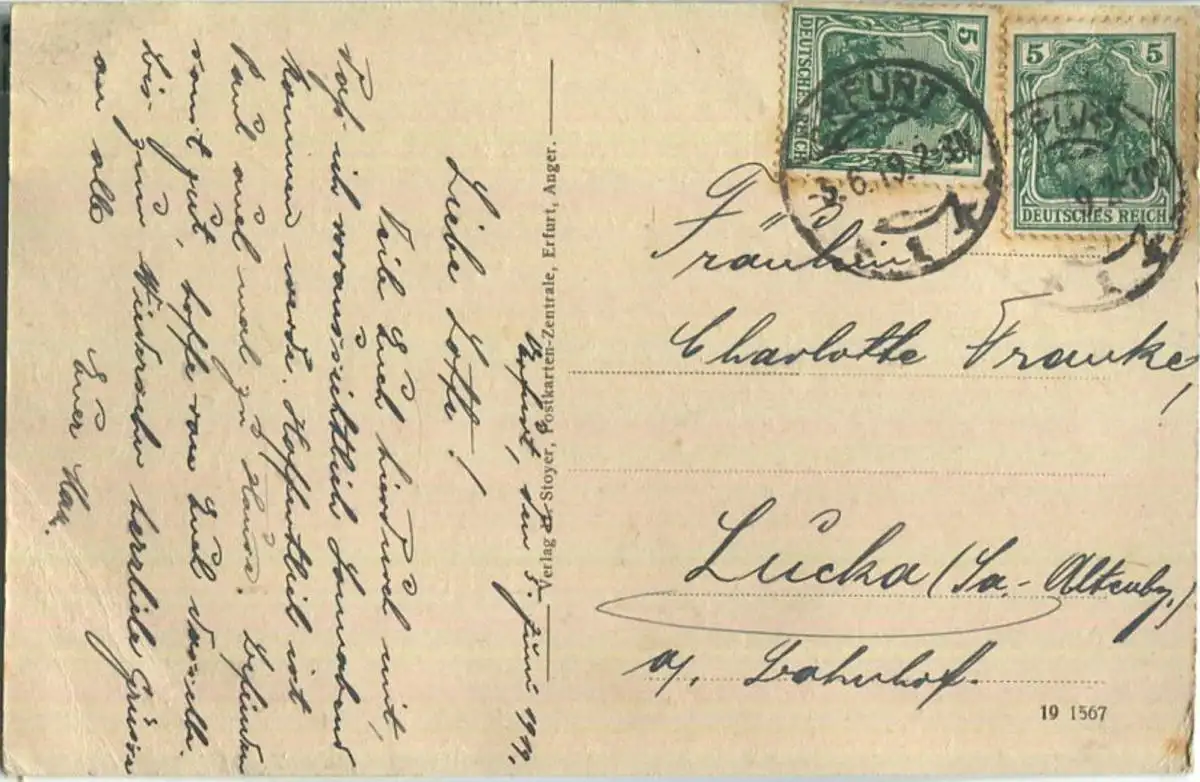 Erfurt, den 5. Juni 1919.
Liebe Lotte!
Teile Euch hierdurch mit,
daß ich voraussichtlich Sonnabend
kommen werde. Hoffentlich ist
Paul auch mal zu Hause. Befinden
sonst gut, hoffe von Euch dasselbe.
Bis zum Wiedersehn herzliche Grüsse
an alle
Euer
Verlag Stoyer, Postkarten-Zentrale, Erfurt, Anger.
5
DEUTSCHES REICH
5 5
DEUTSCHES REICH
ERFURT
5.6.19. 2-3N
1
ERFURT
1
Fräulein
Charlotte Franke,
Lucka (Sa.-Altenbg.)
a/. Bahnhof.
19 1567